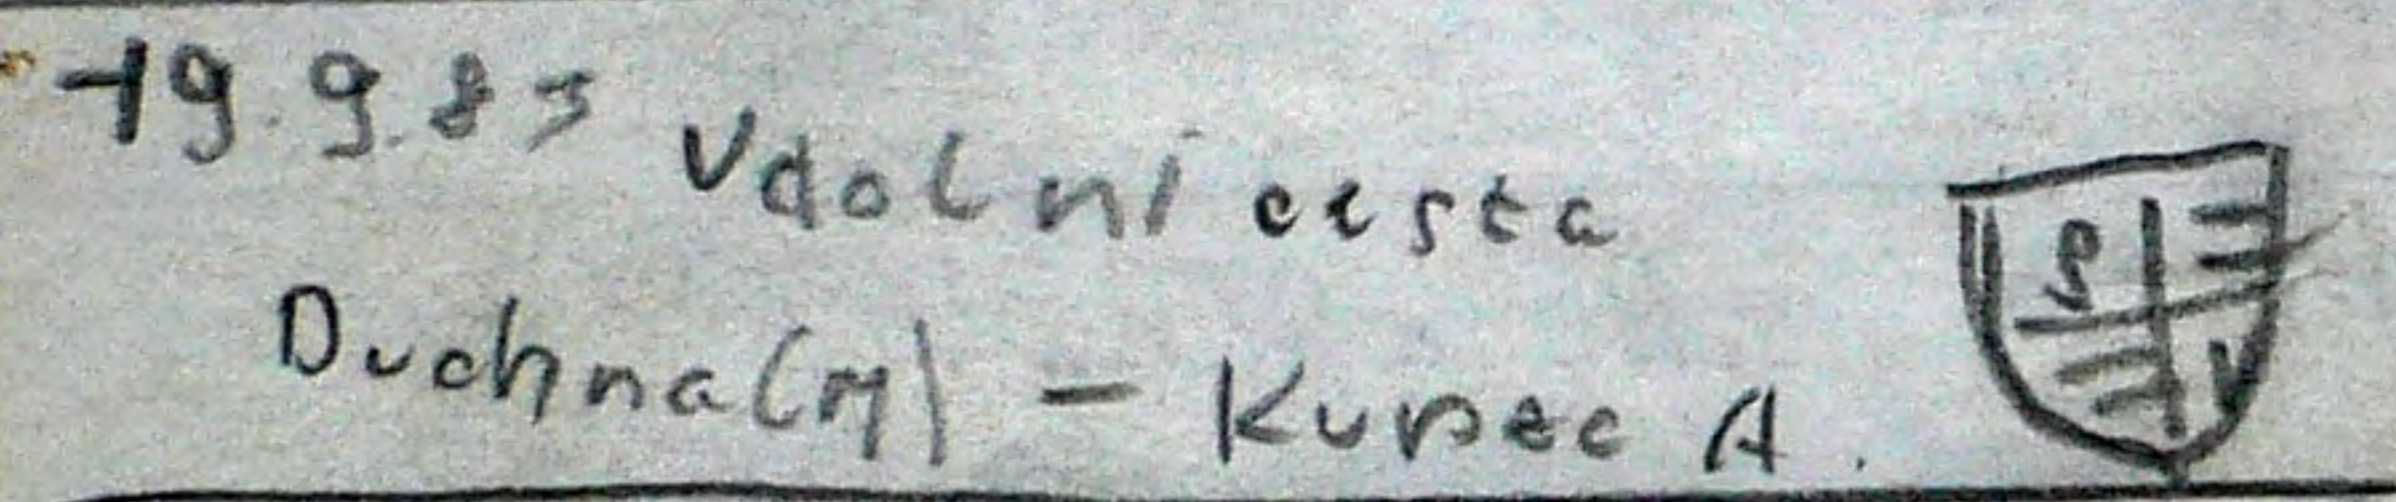 19.9.83 Vdolní cesta
Duchna (M) – Kupec A.
S V